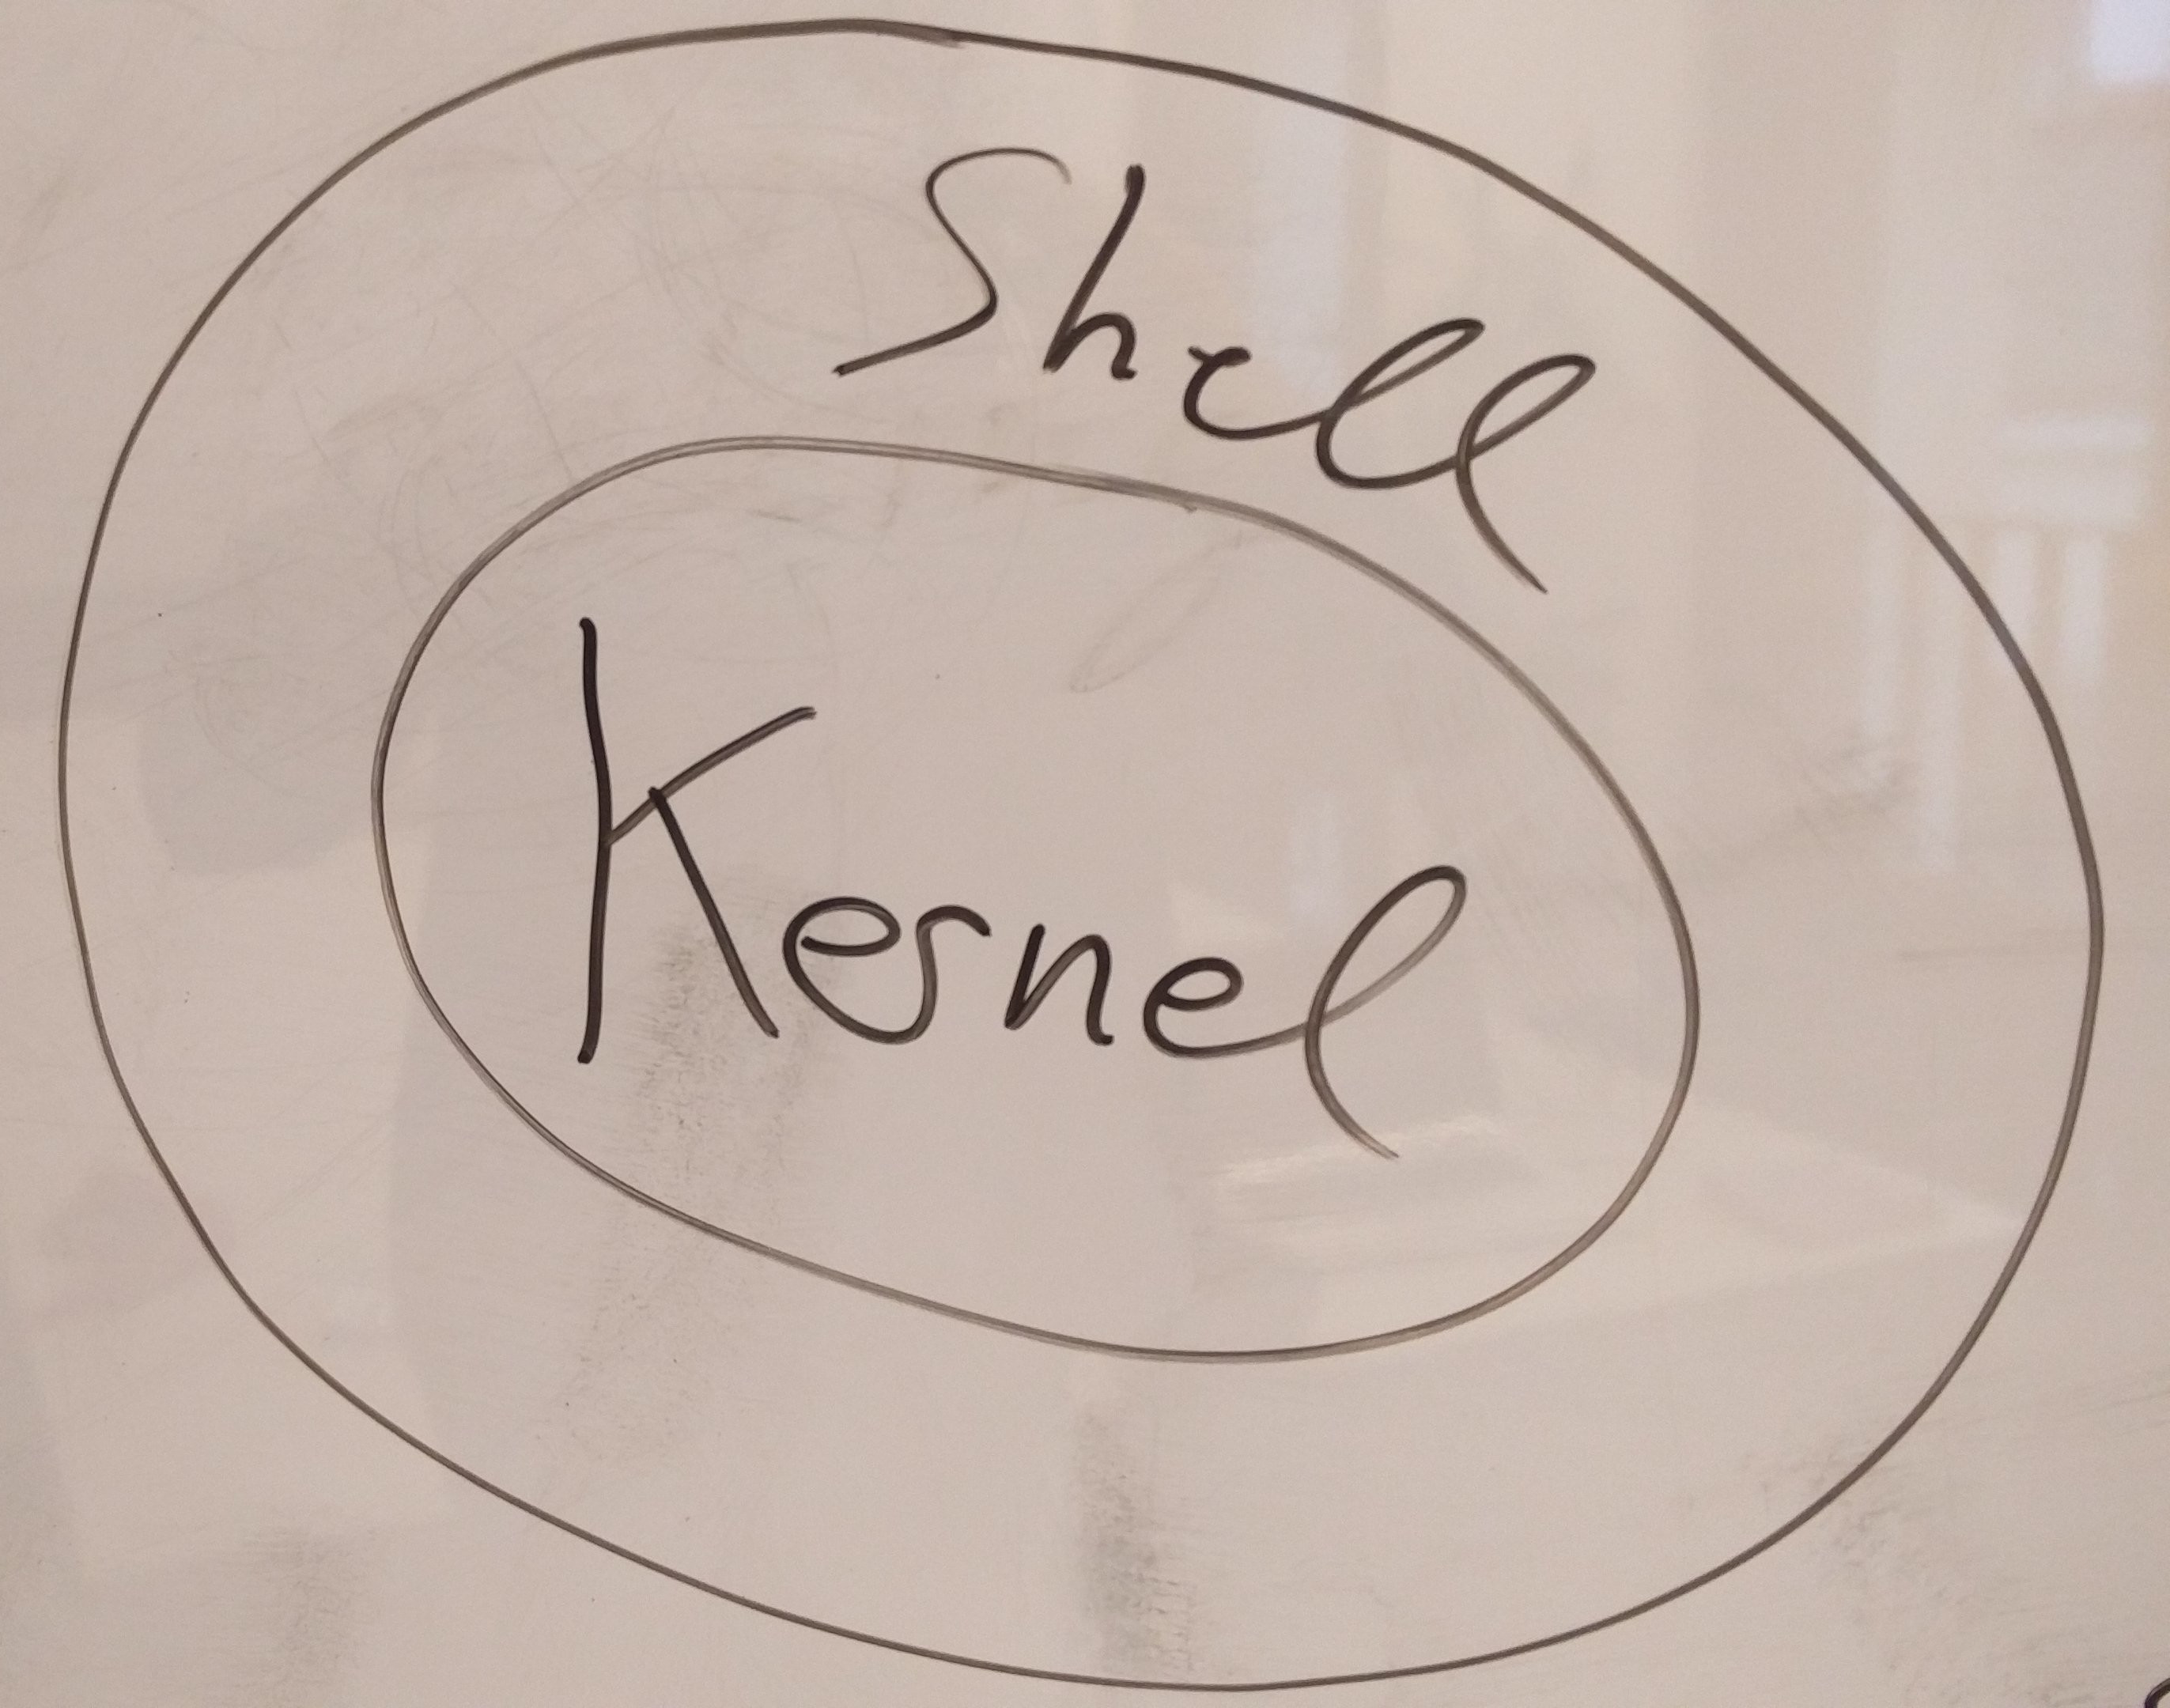 Shell
Kernel